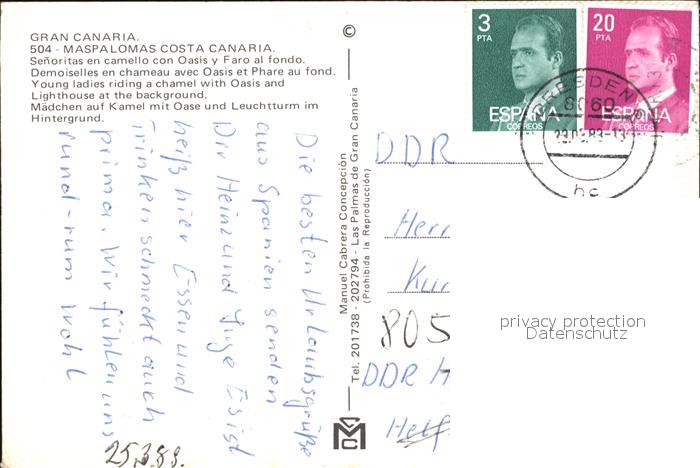 GRAN CANARIA.
504 - MASPALOMAS COSTA CANARIA.
Señoritas en camello con Oasis y Faro al fondo.
Demoiselles en chameau avec Oasis et Phare au fond.
Young ladies riding a chamel with Oasis and
Lighthouse at the background.
Mädchen auf Kamel mit Oase und Leuchtturm im
Hintergrund.
Die besten Urlaubsgrüße
aus Spanien senden
Dir Heinz und Inge Es ist
heiß hier Essen und
Trinken schmeckt auch
prima. Wir fühlen uns
rund-rum wohl
25.3.88.
©
Manuel Cabrera Concepción
Tel. 201738 - 202794 - Las Palmas de Gran Canaria
(Prohibida la Reproducción)
3
PTA
ESPAÑA
CORREOS
20
PTA
ESPAÑA
CORREOS
DRESDEN
8060
hc
DDR
Herr
Kur
805
DDR H
privacy protection
Datenschutz